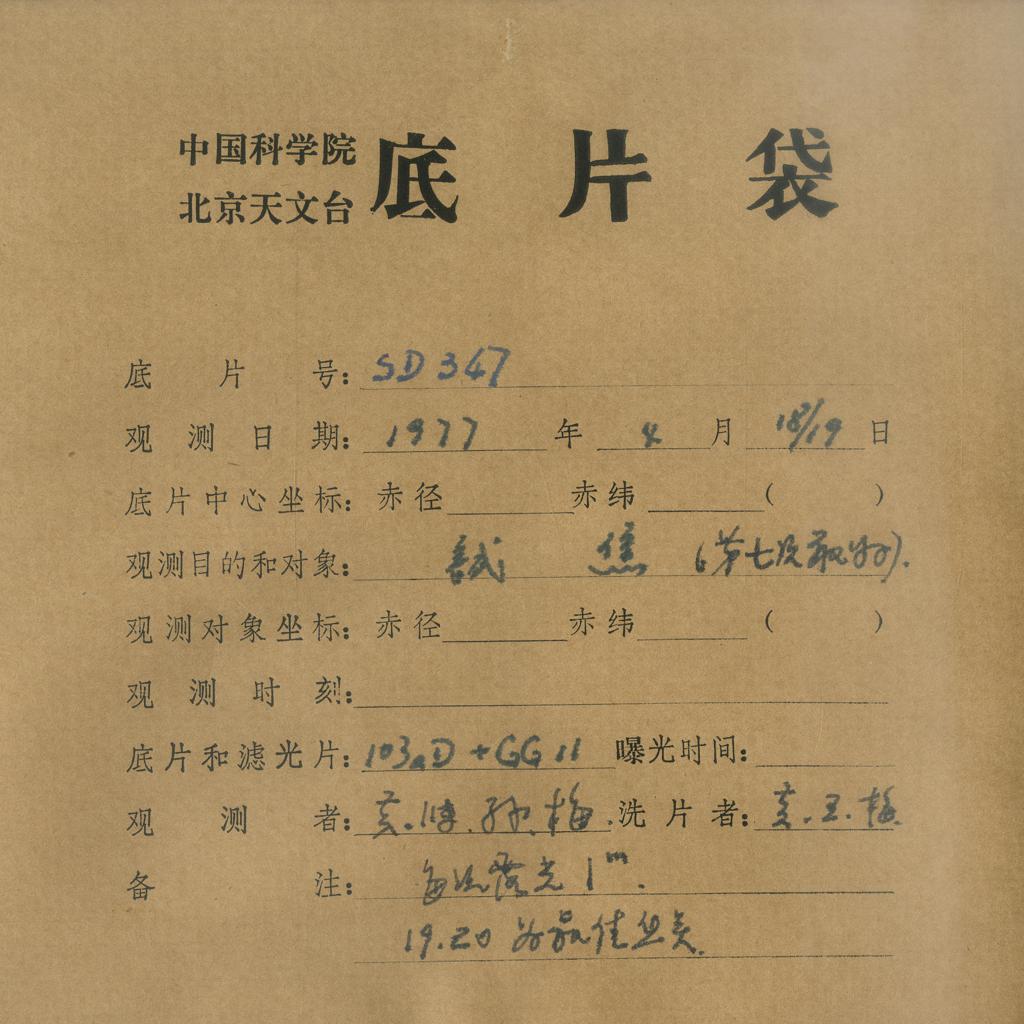 中国科学院
北京天文台 底片袋
底片号: SD 347
观测日期: 1977 年 4 月 18/19 日
底片中心坐标: 赤径 赤纬 ( )
观测目的和对象: 試 焦 (第七次最好).
观测对象坐标: 赤径 赤纬 ( )
观测时刻:
底片和滤光片: 103aD + GG 11 曝光时间:
观测者: 黄. 孙. 梅. 洗片者: 黄. 王. 梅.
备注: 每次露光 1m.
19.20 为最佳焦点.